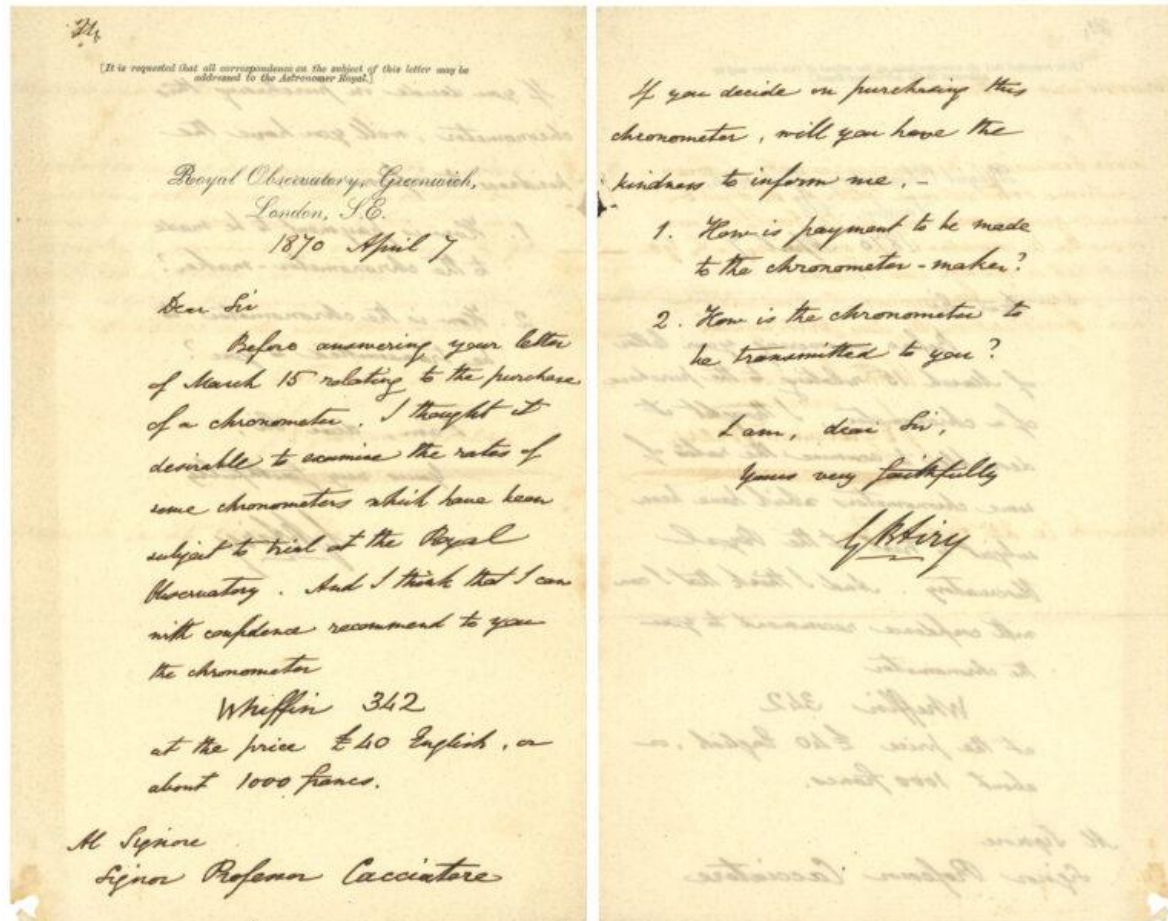 [It is requested that all correspondence on the subject of this letter may be
addressed to the Astronomer Royal.]
Royal Observatory, Greenwich,
London, S.E.
1870 April 7
Dear Sir
Before answering your letter
of March 15 relating to the purchase
of a chronometer, I thought it
desirable to examine the rates of
some chronometers which have been
subject to trial at the Royal
Observatory. And I think that I can
with confidence recommend to you
the chronometer
Whiffin 342
at the price £40 English, or
about 1000 francs.
Al Signore
Signor Professor Cacciatore
If you decide on purchasing this
chronometer, will you have the
kindness to inform me, –
1. How is payment to be made
to the chronometer-maker?
2. How is the chronometer to
be transmitted to you?
I am, dear Sir,
Yours very faithfully
G B Airy